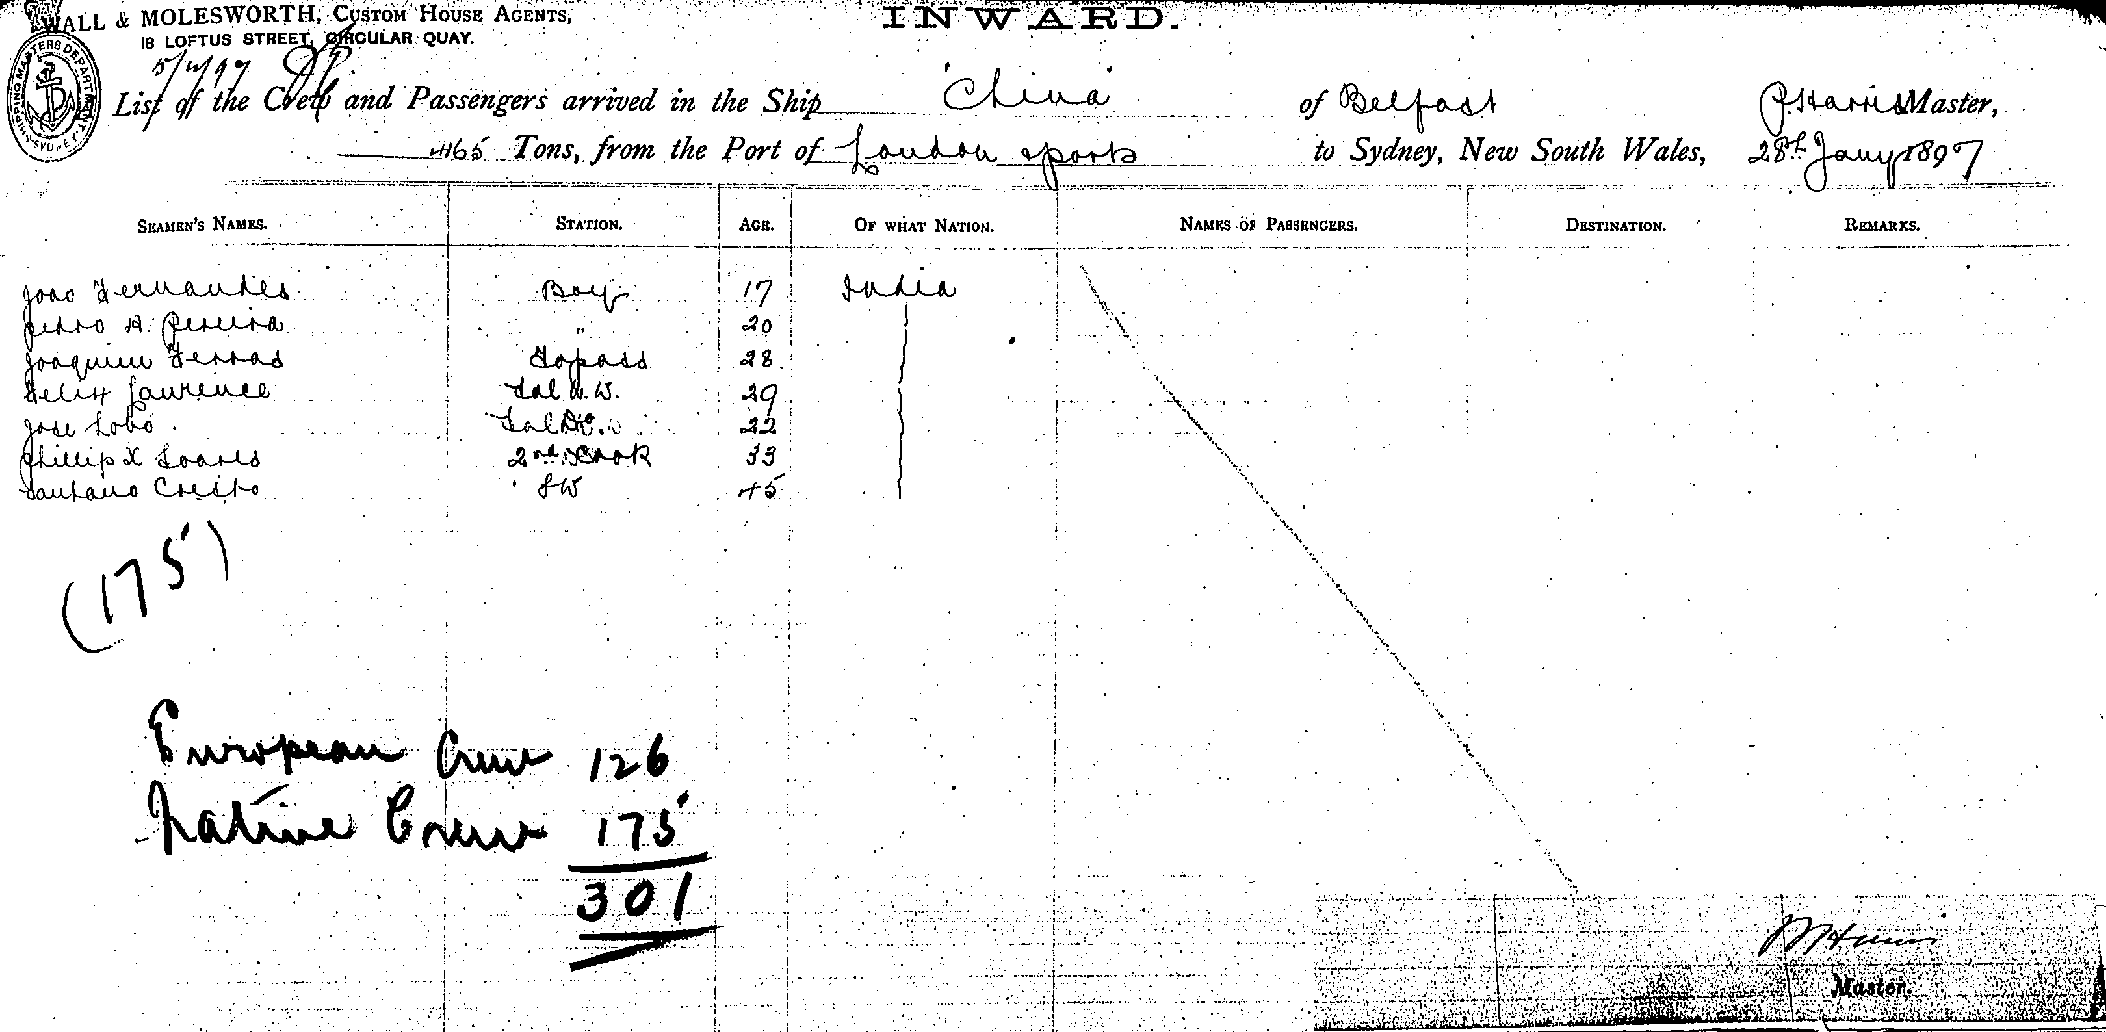 WALL & MOLESWORTH, CUSTOM HOUSE AGENTS,
18 LOFTUS STREET, CIRCULAR QUAY.
INWARD.
List of the Crew and Passengers arrived in the Ship "China" of Belfast P. Harris Master,
4165 Tons, from the Port of London & ports to Sydney, New South Wales, 28th Jany 1897
SEAMEN'S NAMES. STATION. AGE. OF WHAT NATION. NAMES OF PASSENGERS. DESTINATION. REMARKS.
Joao Fernandes Boy 17 India
Pedro A. Pereira " 20
Joaquim Ferras Topass 28
Felix Laurence 29
Jose Lobo 22
Phillip X Soares 2nd Cook 33
Caetano 45
(175)
European Crew 126
Native Crew 175
301
Master.